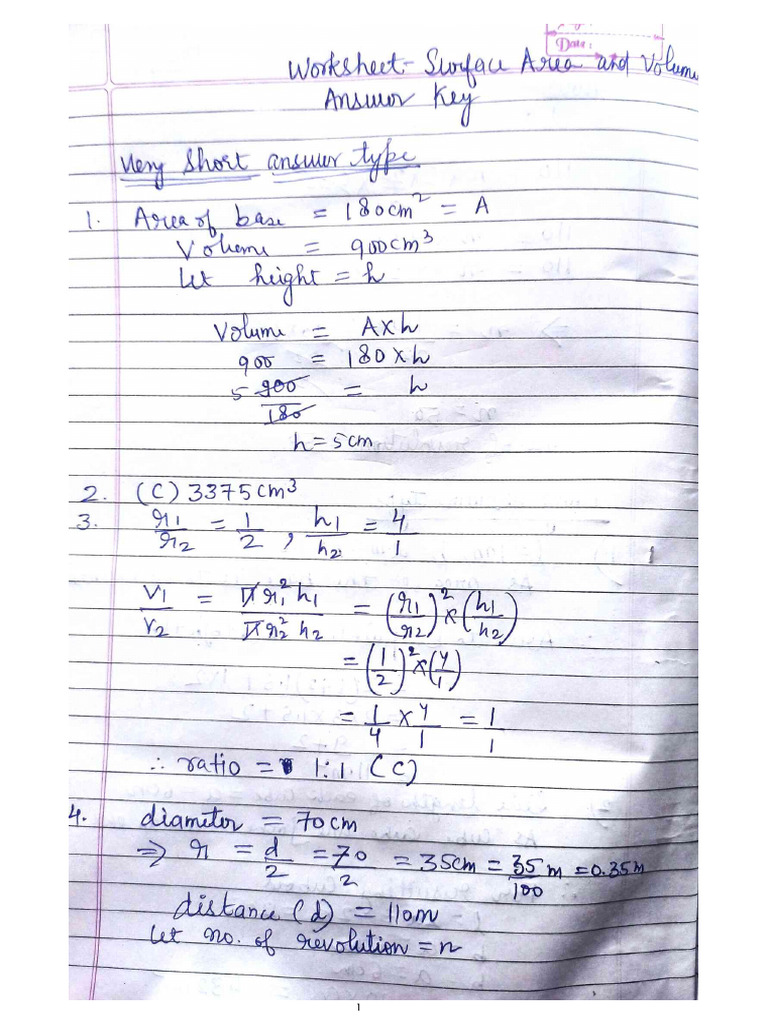 Date:
Worksheet- Surface Area and Volume
Answer Key
Very Short answer type
1. Area of base = 180cm² = A
Volume = 900cm³
Let height = h
Volume = A×h
900 = 180×h
5 900/180 = h
h=5cm
2. (C) 3375cm³
3. r₁/r₂ = 1/2 , h₁/h₂ = 4/1
V₁/V₂ = πr₁²h₁/πr₂²h₂ = (r₁/r₂)² × (h₁/h₂)
= (1/2)² × (4/1)
= 1/4 × 4/1 = 1/1
∴ ratio = 1:1 (C)
4. diameter = 70cm
⇒ r = d/2 = 70/2 = 35cm = 35/100 m = 0.35m
distance (d) = 110m
Let no. of revolution = n
1